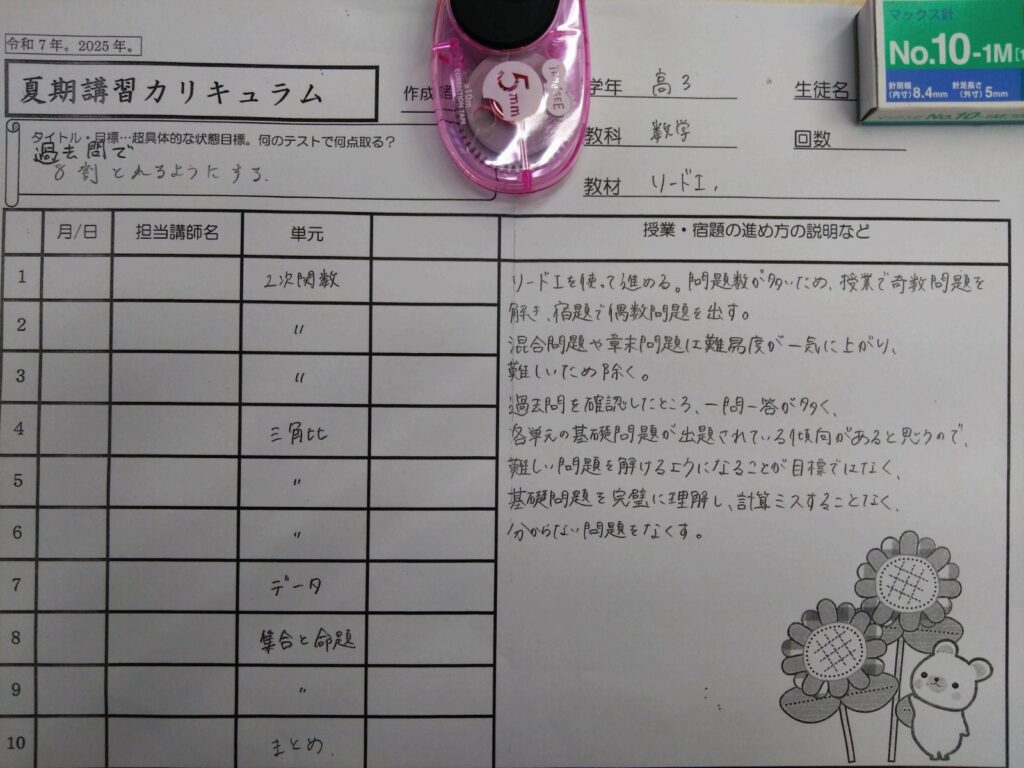 令和7年。2025年。
夏期講習カリキュラム
作成
学年 高3
生徒名
タイトル・目標…超具体的な状態目標。何のテストで何点取る?
過去問で
8割とれるようにする.
教科 数学
回数
教材 リードI.
5mm
マックス針
No.10-1M
針肩幅(内寸)8.4mm 針足長さ(外寸)5mm
月/日 担当講師名 単元 授業・宿題の進め方の説明など
1 2次関数
2 〃
3 〃
4 三角比
5 〃
6 〃
7 データ
8 集合と命題
9 〃
10 まとめ.
リードIを使って進める。問題数が多いため、授業で奇数問題を
解き、宿題で偶数問題を出す。
混合問題や章末問題は難易度が一気に上がり、
難しいため除く。
過去問を確認したところ、一問一答が多く、
各単元の基礎問題が出題されている傾向があると思うので、
難しい問題を解けるようになることが目標ではなく、
基礎問題を完璧に理解し、計算ミスすることなく、
分からない問題をなくす。